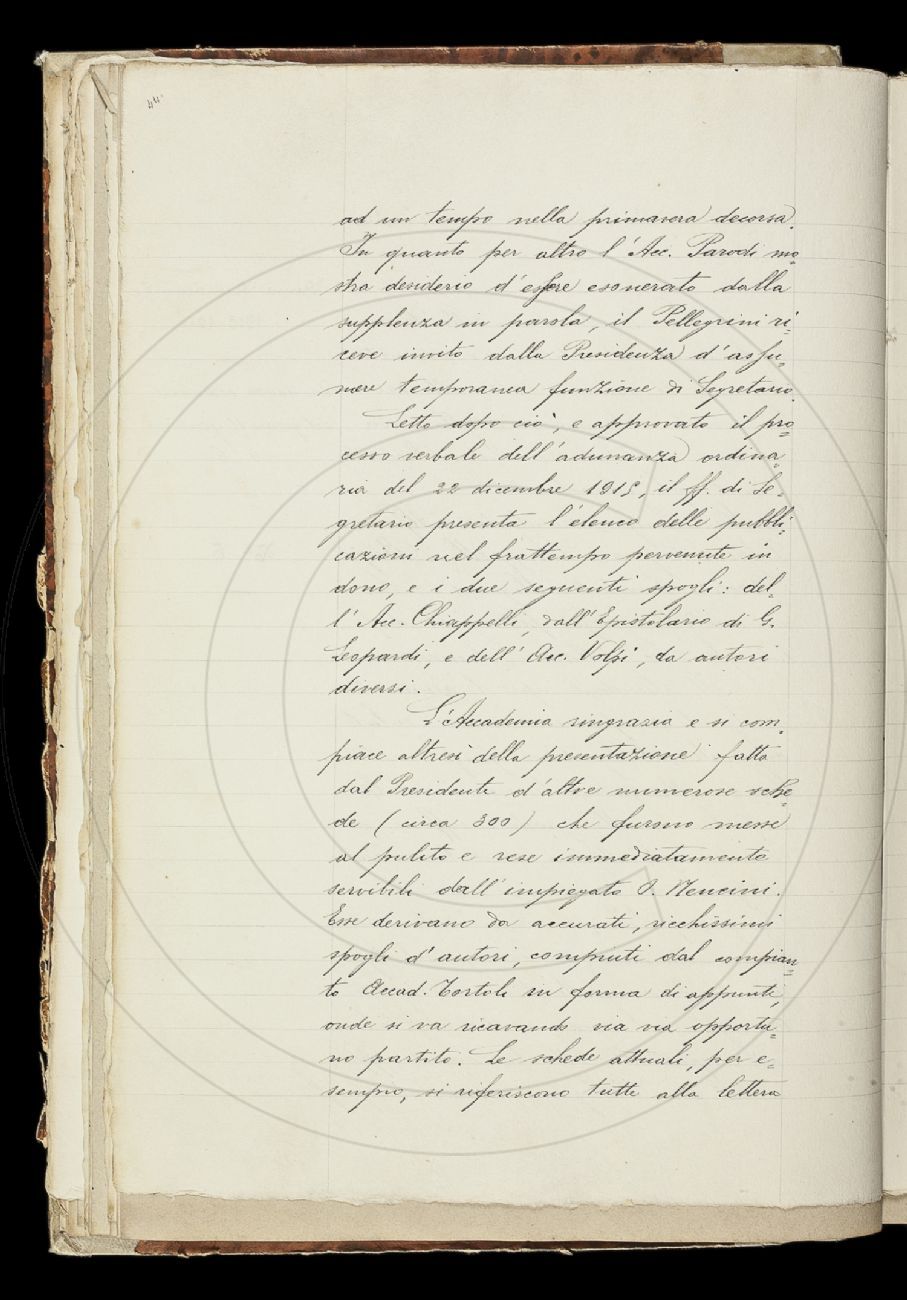 44
ad un tempo nella primavera decorsa.
In quanto per altro l'Acc. Parodi mo=
stra desiderio d'essere esonerato dalla
supplenza in parola, il Pellegrini ri=
ceve invito dalla Presidenza d'assu=
mere temporanea funzione di Segretario.
Letto dopo ciò, e approvato il pro=
cesso verbale dell'adunanza ordina=
ria del 22 dicembre 1915, il ff. di Se=
gretario presenta l'elenco delle pubbli=
cazioni nel frattempo pervenute in
dono, e i due seguenti spogli: del=
l'Acc. Chiappelli, dall'Epistolario di G.
Leopardi, e dell'Acc. Volpi, da autori
diversi.
L'Accademia ringrazia e si com=
piace altresì della presentazione fatta
dal Presidente d'altre numerose sche=
de (circa 300) che furono messe
al pulito e rese immediatamente
servibili dall'impiegato O. Mencini.
Esse derivano da accurati, ricchissimi
spogli d'autori, compiuti dal compian=
to Accad. Tortoli in forma di appunti,
onde si va ricavando via via opportu=
no partito. Le schede attuali, per e=
sempio, si riferiscono tutte alla lettera